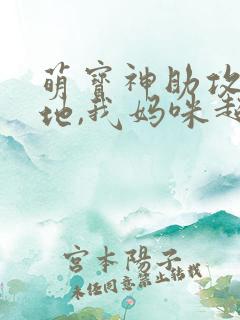 萌宝神助攻
地,我妈咪超
宫本陽子
未经同意禁止转载